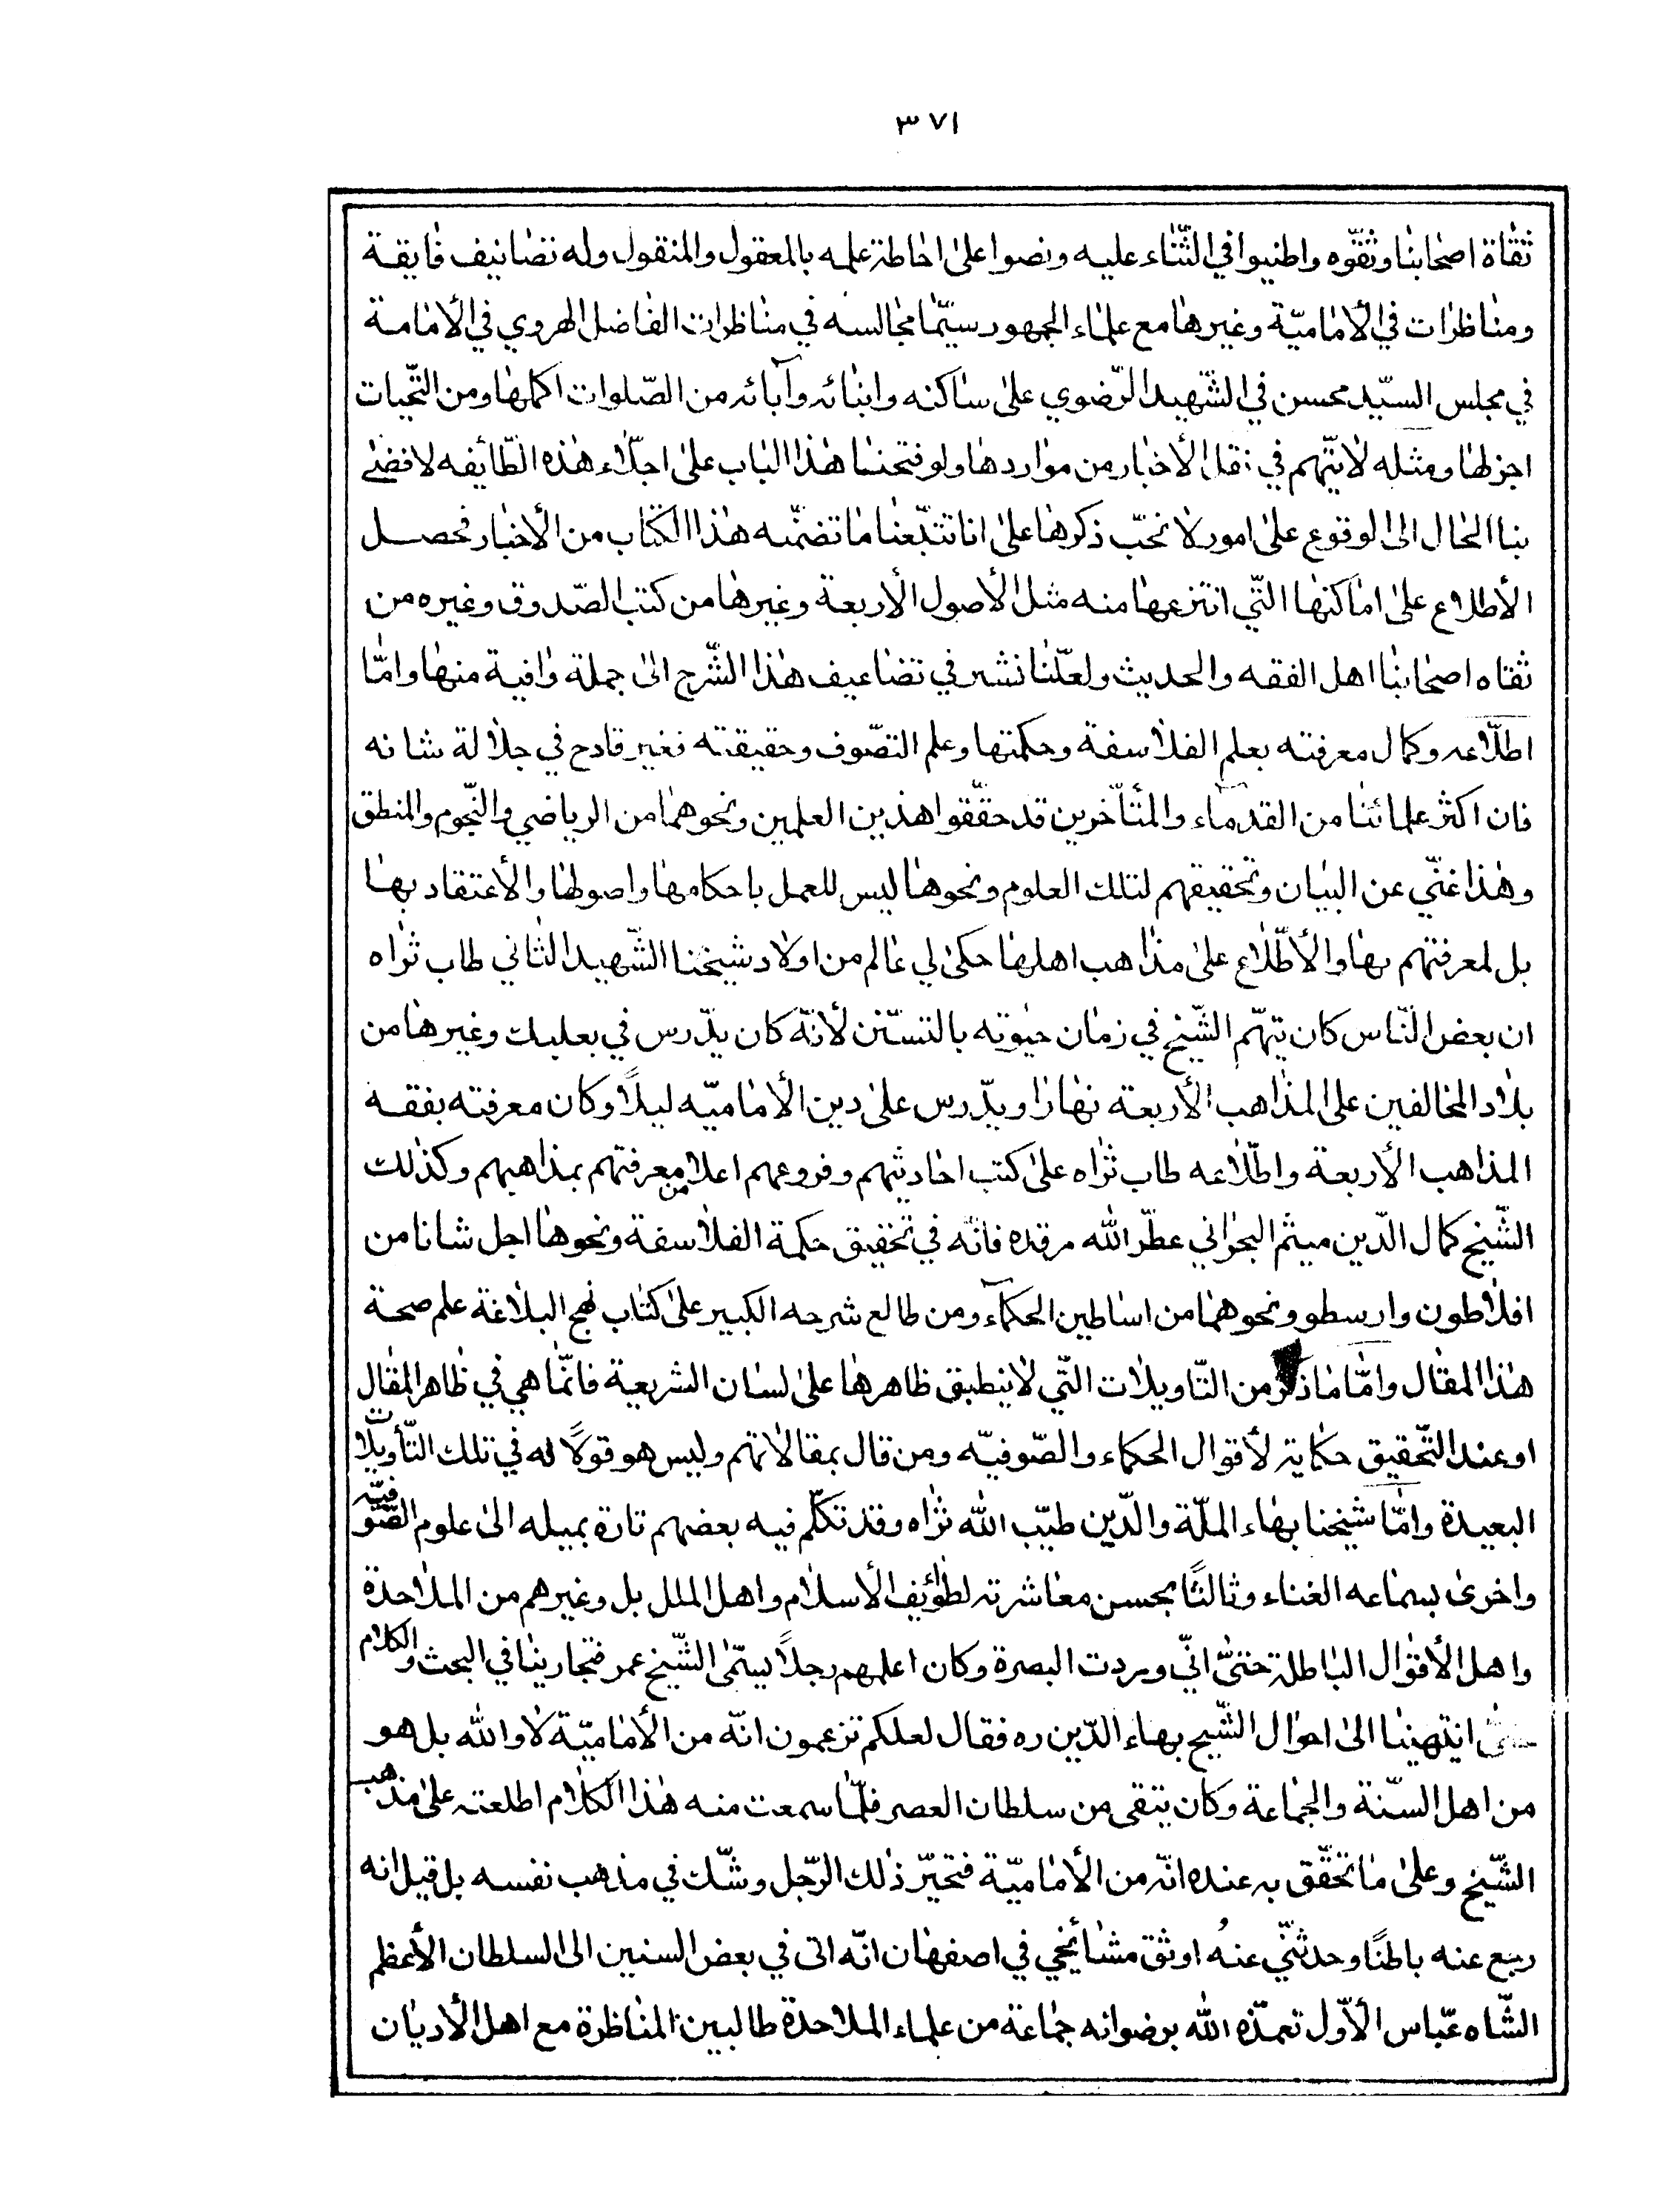 ٣٧١
ثقاة اصحابنا وثقّوه واطنبوا في الثّناء عليه ونصوا على احاطة علمه بالمعقول والمنقول وله تصانيف فايقة
ومناظرات في الأماميّة وغيرها مع علماء الجمهور سيّما مجالسه في مناظرات الفاضل الهروي في الأمامة
في مجلس السيّد محسن في الشّهيد الرّضوي على ساكنه وابنائه وآبائه من الصّلوات اكملها ومن التّحيات
اجزلها ومثله لا يتّهم في نقل الأخبار من مواردها ولو فتحنا هذا الباب على اجلّاء هذه الطّائفه لا فضى
بنا الحال الى الوقوع على امور لا نحبّ ذكرها على انا تتبّعنا ما تضمّنه هذا الكتاب من الأخبار فحصل
الأطلاع على اماكنها التّي انتزعها منه مثل الأصول الأربعة وغيرها من كتب الصّدوق وغيره من
ثقاه اصحابنا اهل الفقه والحديث ولعلّنا نشير في تضاعيف هذا الشّرح الى جملة وافية منها وامّا
اطلّاعه وكمال معرفته بعلم الفلاسفة وحكمتها وعلم التصّوف وحقيقته فغير قادح في جلالة شانه
فان اكثر علمائنا من القدماء والمتأخّرين قد حقّقوا هذين العلمين ونحوهما من الرياضي والنّجوم والمنطق
وهذا غنّي عن البيان وتحقيقهم لتلك العلوم ونحوها ليس للعمل باحكامها واصولها والأعتقاد بها
بل لمعرفتهم بها والأطّلاع على مذاهب اهلها حكى لي عالم من اولاد شيخنا الشّهيد الثاني طاب ثراه
ان بعض النّاس كان يتهّم الشّيخ في زمان حيوته بالتسنّن لأنّه كان يدّرس في بعلبك وغيرها من
بلاد المخالفين على المذاهب الأربعة نهارا ويدّرس على دين الأماميّه ليلًا وكان معرفته بفقه
المذاهب الأربعة واطّلاعه طاب ثراه على كتب احاديثهم وفروعهم اعلا من معرفتهم بمذاهبهم وكذلك
الشّيخ كمال الدّين ميثم البحراني عطّر الله مرقده فانّه في تحقيق حكمة الفلاسفة ونحوها اجل شانا من
افلاطون وارسطو ونحوهما من اساطين الحكماء ومن طالع شرحه الكبير على كتاب نهج البلاغة علم صحة
هذا المقال وامّا ما ذكر من التّاويلات التّي لا ينطبق ظاهرها على لسان الشريعة فانّما هي في ظاهر المقال
او عند التّحقيق حكاية لأقوال الحكماء والصّوفيّه ومن قال بمقالاتهم وليس هو قولًا له في تلك التّأويلات
البعيدة وامّا شيخنا بهاء الملّة والدّين طيّب الله ثراه وقد تكلّم فيه بعضهم تارة بميله الى علوم الصّوفيّه
واخرى بسماعه الغناء وثالثًا بحسن معاشرته لطوائف الأسلام واهل الملل بل وغيرهم من الملاحدة
واهل الأقوال الباطلة حتىّ انّي وردت البصرة وكان اعلمهم رجلًا يسمّى الشّيخ عمر فتجارينا في البحث والكلام
حتى انتهينا الى احوال الشّيخ بهاء الدّين ره فقال لعلكم تزعمون انّه من الأماميّة لا والله بل هو
من اهل السّنّة والجماعة وكان يتقى من سلطان العصر فلّما سمعت منه هذا الكلام اطلعته على مذهب
الشّيخ وعلى ما تحقّق به عنده انّه من الأماميّة فتحيّر ذلك الرّجل وشّك في مذهب نفسه بل قيل انه
رجع عنه باطنًا وحدثنّي عنهُ اوثق مشائخي في اصفهان انّه اتى في بعض السنين الى السلطان الأعظم
الشّاه عبّاس الأوّل تغمّده الله برضوانه جماعة من علماء الملاحدة طالبين المناظرة مع اهل الأديان